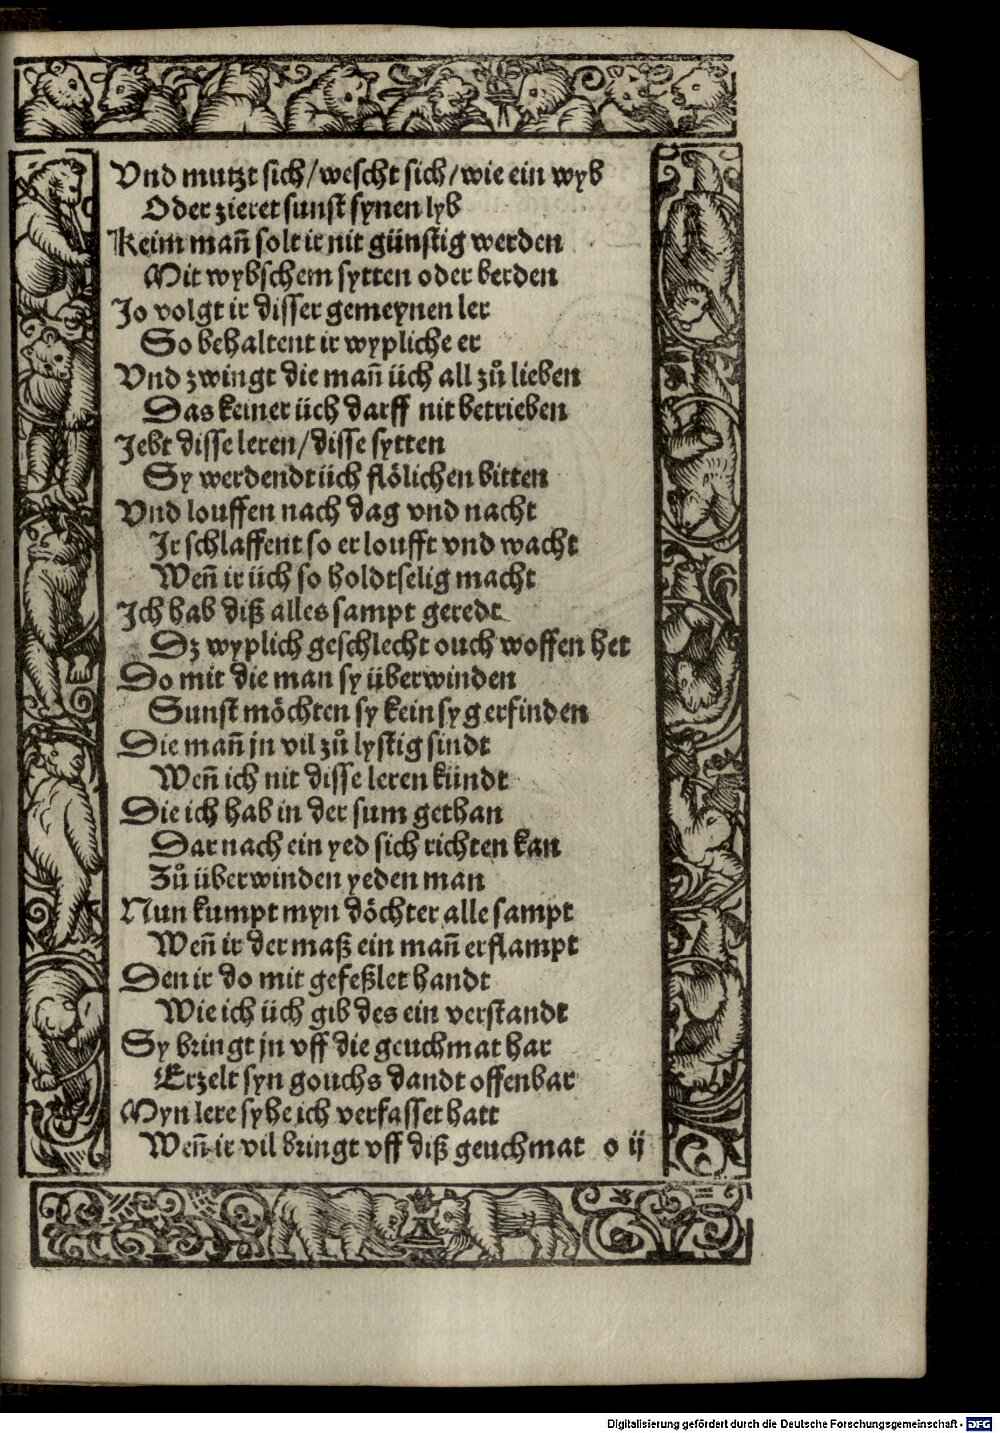 Vnd mutzt sich/wescht sich/wie ein wyb
Oder zieret sunst synen lyb
Keim mañ solt ir nit günstig werden
Mit wybschem sytten oder berden
Jo volgt ir disser gemeynen ler
So behaltent ir wypliche er
Vnd zwingt die mañ üch all zuͦ lieben
Das keiner üch darff nit betrieben
Jebt disse leren/disse sytten
Sy werdendt üch flölichen bitten
Vnd louffen nach dag vnd nacht
Ir schlaffent so er loufft vnd wacht
Weñ ir üch so holdtselig macht
Ich hab diß alles sampt geredt
Dz wyplich geschlecht ouch woffen het
Do mit die man sy überwinden
Sunst möchten sy kein syg erfinden
Die mañ jn vil zuͦ lystig sindt
Weñ ich nit disse leren kündt
Die ich hab in der sum gethan
Dar nach ein yed sich richten kan
Zuͦ überwinden yeden man
Nun kumpt myn döchter alle sampt
Weñ ir der maß ein mañ erflampt
Den ir do mit gefeßlet handt
Wie ich üch gib des ein verstandt
Sy bringt jn vff die geuchmat har
Erzelt syn gouchs dandt offenbar
Myn lere syhe ich verfasset hatt
Weñ ir vil bringt vff diß geuchmat o ij
Digitalisierung gefördert durch die Deutsche Forschungsgemeinschaft - DFG